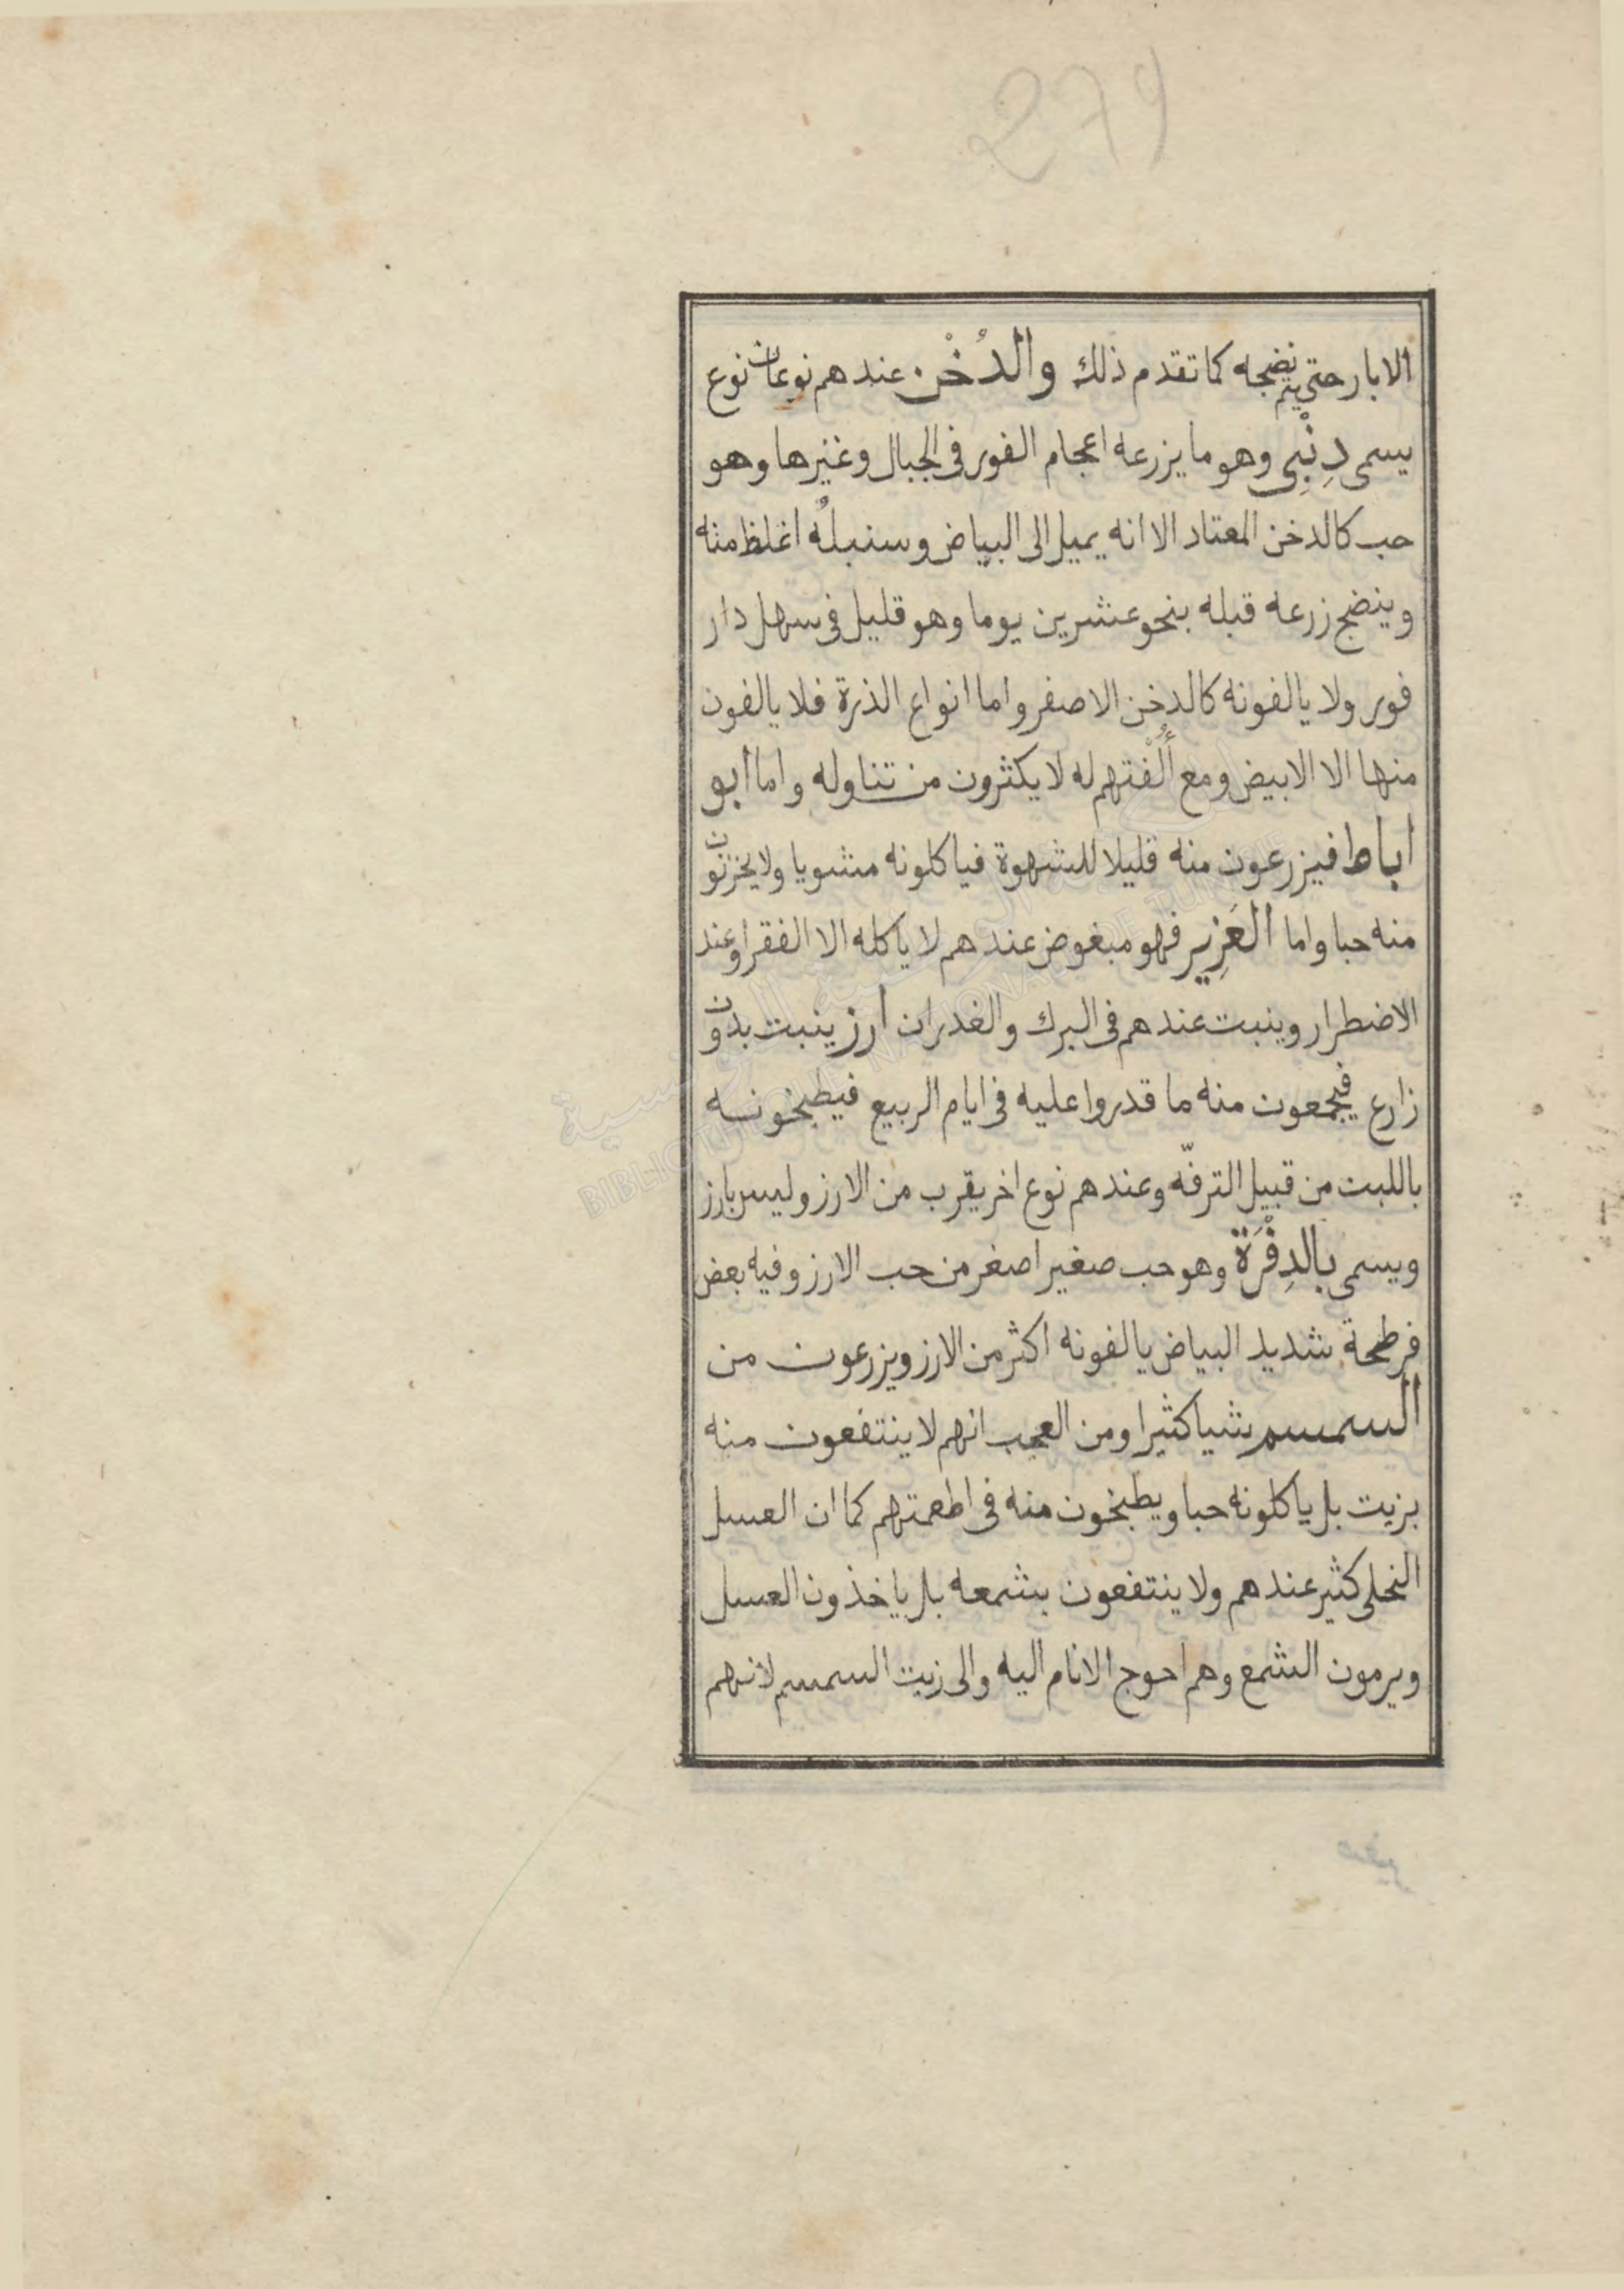 279
الابار حتى يتم نضجه كما تقدم ذلك والدُخْن عندهم نوعان نوع
يسمى دِنْبِى وهو ما يزرعه اعجام الفور فى الجبال وغيرها وهو
حب كالدخن المعتاد الا انه يميل الى البياض وسنبلُه اغلظ منه
وينضج زرعه قبله بنحو عشرين يوما وهو قليل فى سهل دار
فور ولا يالفونه كالدخن الاصفر واما انواع الذرة فلا يالفون
منها الا الابيض ومع أُلْفتهم له لا يكثرون من تناوله واما ابو
اباط فيزرعون منه قليلا للشهوة فياكلونه مشويا ولا يخزنون
منه حبا واما العَزِير فهو مبغوض عندهم لا ياكله الا الفقرا وعند
الاضطرار وينبت عندهم فى البرك والغدران ارز ينبت بدون
زارع فيجمعون منه ما قدروا عليه فى ايام الربيع فيطبخونه
باللبن من قبيل الترفّه وعندهم نوع اخر يقرب من الارز وليس بارز
ويسمى بالدِفْرَة وهو حب صغير اصغر من حب الارز وفيه بعض
فرطحة شديد البياض يالفونه اكثر من الارز ويزرعون من
السمسم شيا كثيرا ومن العجب انهم لا ينتفعون منه
بزيت بل ياكلونه حبا ويطبخون منه فى اطعمتهم كما ان العسل
النحلى كثير عندهم ولا ينتفعون بشمعه بل ياخذون العسل
ويرمون الشمع وهم احوج الانام اليه والى زيت السمسم لانهم